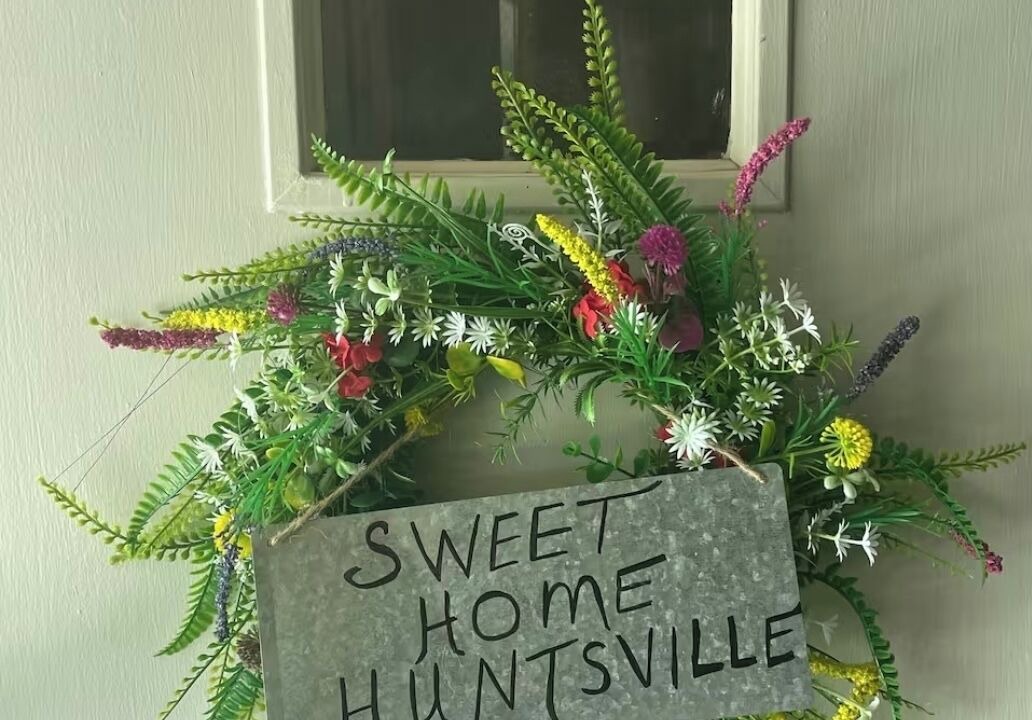 SWEET
HOME
HUNTSVILLE